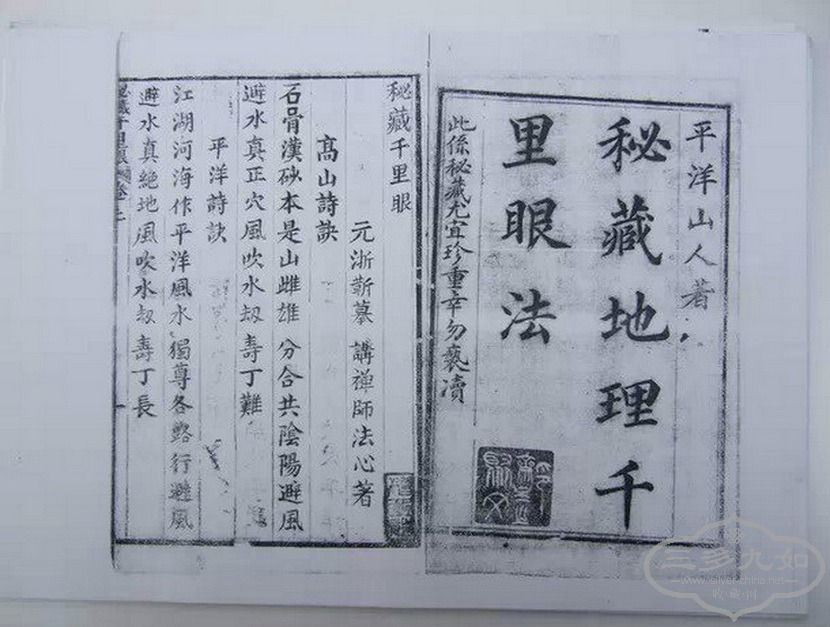 平洋山人著
秘藏地理千
里眼法
此係秘藏尤宜珍重幸勿褻瀆
秘藏千里眼
元浙蘄摹講禪師法心著
高山詩訣
石骨漢砂本是山雌雄分合共陰陽避風
避水真正穴風吹水刼壽丁難
平洋詩訣
江湖河海作平洋風水獨尊各路行避風
避水真絶地風吹水刼壽丁長
三多九如
www.silver-china.net
收藏網